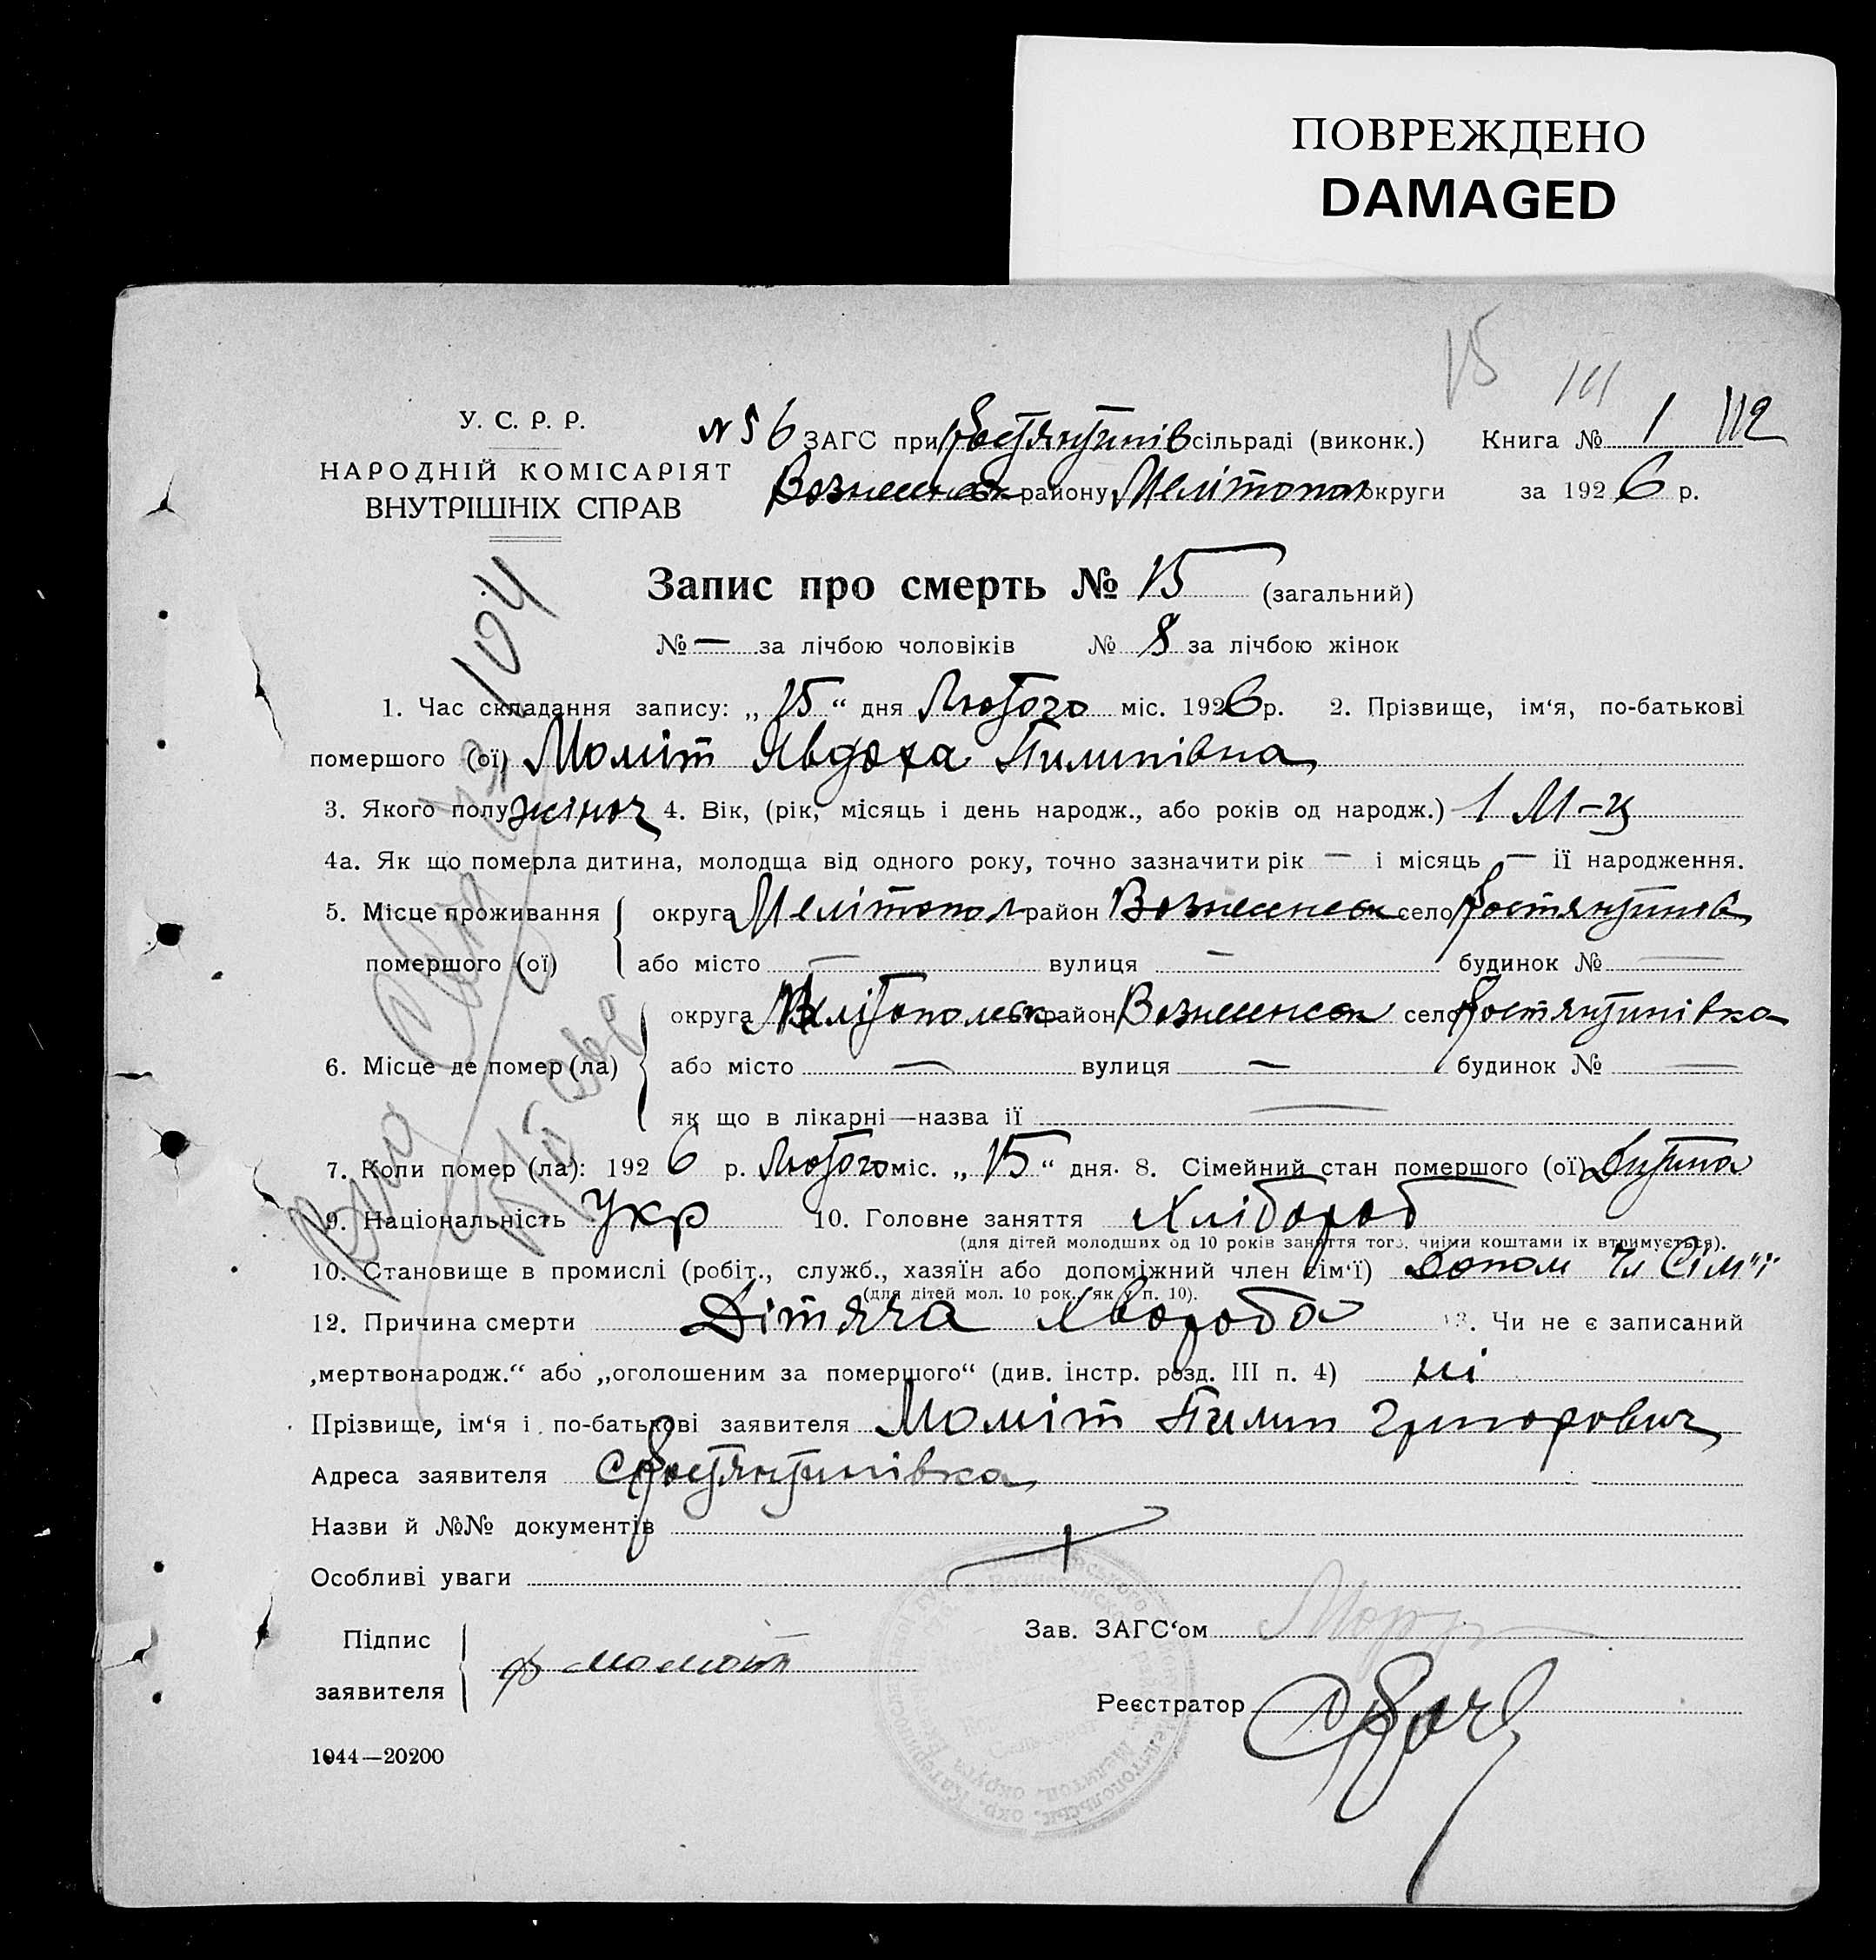 ПОВРЕЖДЕНО
DAMAGED
15 111
У. С. Р. Р.
НАРОДНІЙ КОМІСАРІЯТ
ВНУТРІШНІХ СПРАВ
N 56 ЗАГС при Костянтинів сільраді (виконк.) Книга № 1 112
Вознесенськ району Мелітопол округи за 1926 р.
Запис про смерть № 15 (загальний)
№ — за лічбою чоловіків № 8 за лічбою жінок
1. Час складання запису: „ 15 “ дня Лютого міс. 1926 р. 2. Прізвище, ім‘я, по-батькові
помершого (ої) Моміт Явдоха Пилипівна
3. Якого полу жіноч 4. Вік, (рік, місяць і день народж., або років од народж.) 1 М-ц
4а. Як що померла дитина, молодща від одного року, точно зазначити рік — і місяць — її народження.
5. Місце проживання помершого (ої) округа Мелітопол район Вознесенськ село Костянтинів
або місто — вулиця — будинок № —
6. Місце де помер (ла) округа Мелітопольськ район Вознесенськ село Костянтинівка
або місто — вулиця — будинок № —
як що в лікарні—назва її —
7. Коли помер (ла): 1926 р. Лютого міс. „ 15 “ дня. 8. Сімейний стан помершого (ої) Дитина
9. Національність Укр 10. Головне заняття Хлібороб
(для дітей молодших од 10 років заняття того, чиїми коштами їх втримується).
10. Становище в промислі (робіт., служб., хазяїн або допоміжний член сім‘ї) Допом чл Сім"ї
(для дітей мол. 10 рок., як у п. 10).
12. Причина смерти Дітяча Хвороба 13. Чи не є записаний
„мертвонародж.“ або „оголошеним за помершого“ (див. інстр. розд. III п. 4) ні
Прізвище, ім‘я і по-батькові заявителя Моміт Пилип Григорович
Адреса заявителя с Костянтинівка
Назви й №№ документів
Особливі уваги
Підпис заявителя Ф Момот
Зав. ЗАГС‘ом
Реєстратор
1044—20200
104